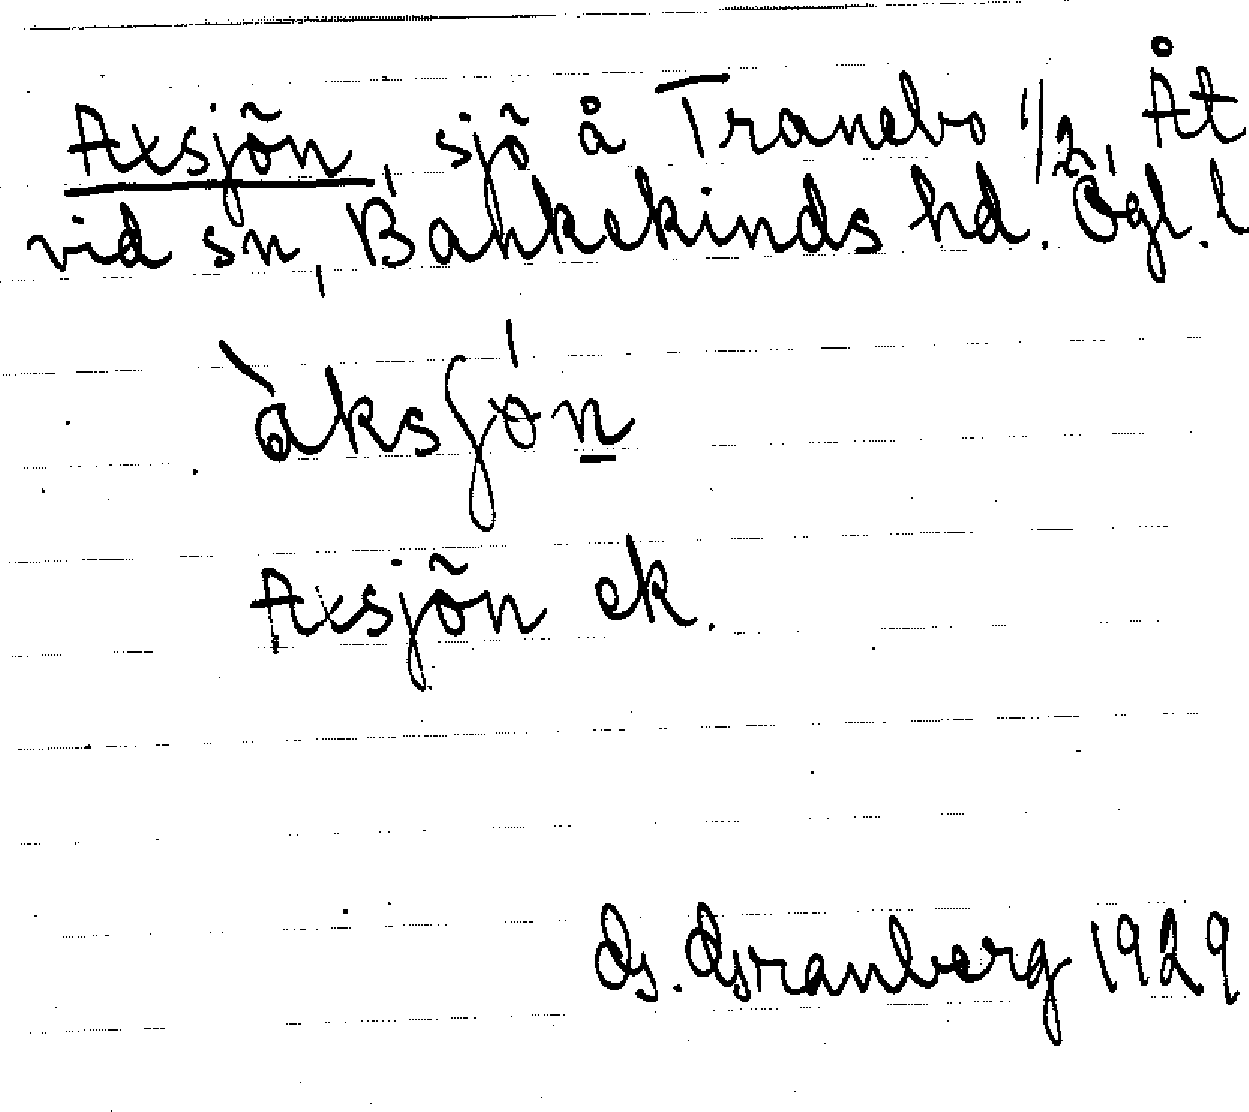 Axsjön, sjö å Tranebo 1/2, Åt
vid sn, Bankekinds hd. Ögl. l
àksjón
Axsjön ek.
G. Granberg 1929